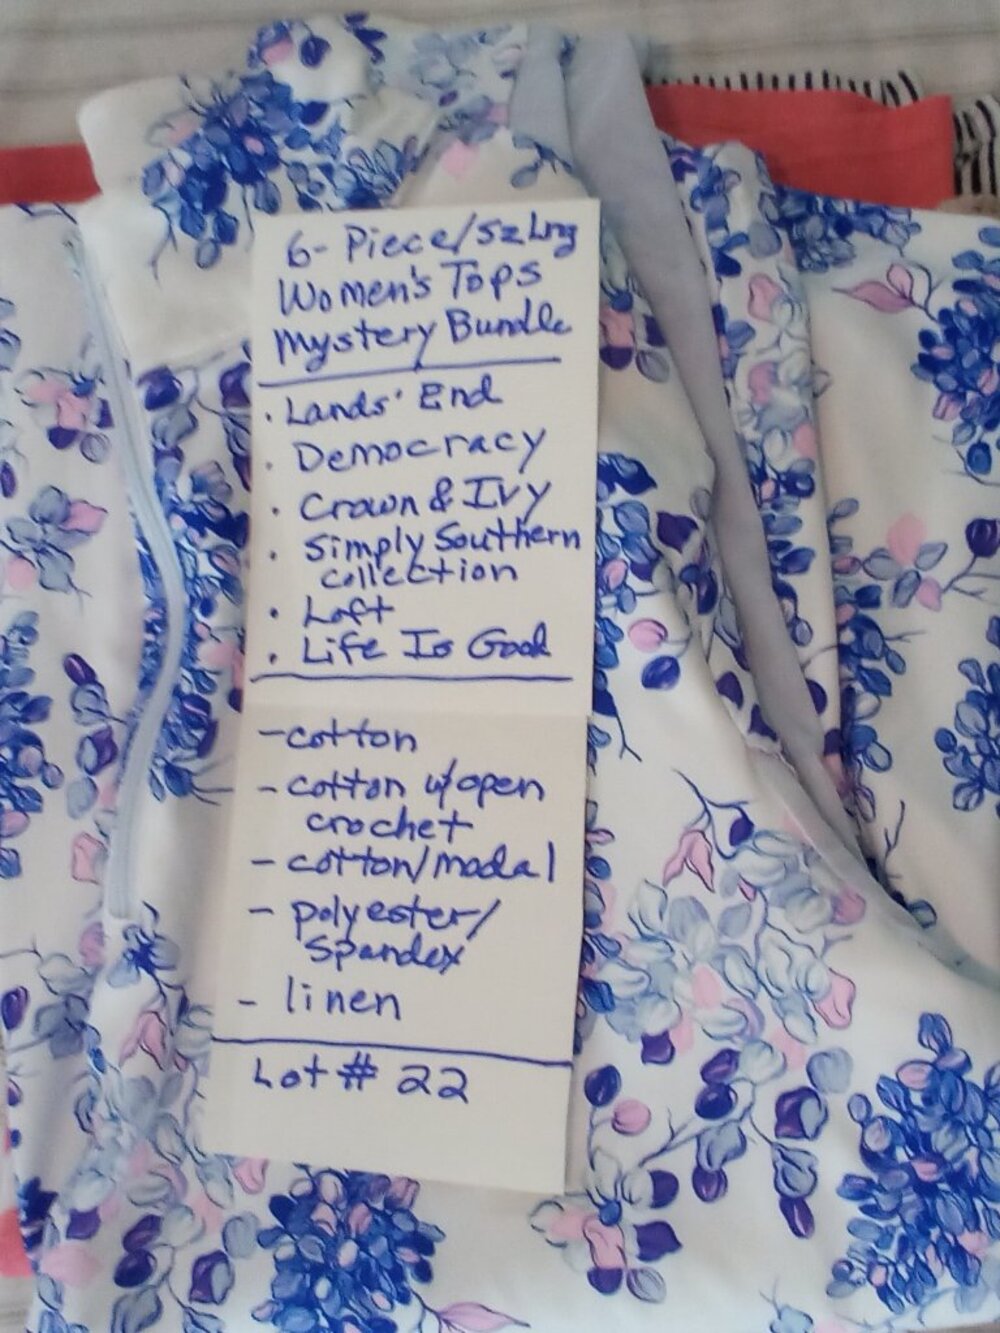 6- Piece/Sz Lrg
Women's Tops
Mystery Bundle
• Lands' End
• Democracy
• Crown & Ivy
• Simply Southern
collection
• Loft
• Life Is Good
- cotton
- cotton w/open
crochet
- cotton/modal
- polyester/
spandex
- linen
Lot # 22